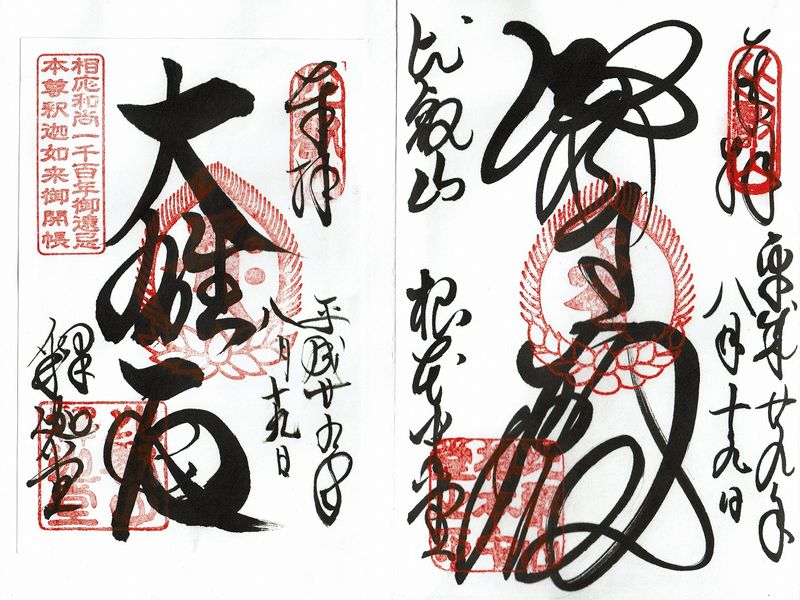 奉拝
平成廿九年
八月十九日
醫王殿
比叡山
根本中堂
奉拝
平成廿九年
八月十九日
大雄殿
釋迦堂
相応和尚一千百年御遠忌
本尊釈迦如来御開帳